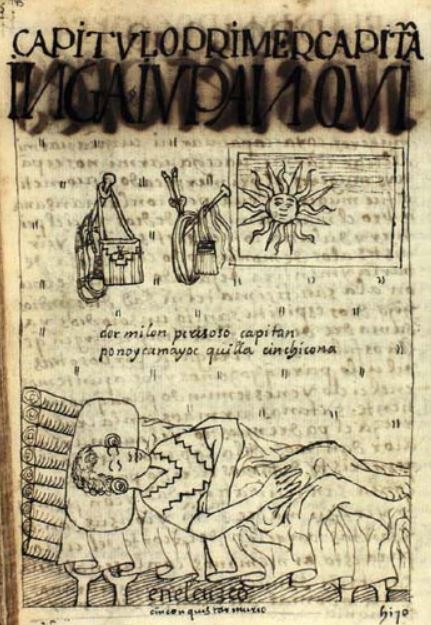 CAPITVLO PRIMER CAPITÃ
INGA IVPANQVI
dormilon peresoso capitan
ponoycamayoc quilla cinchicona
en el cuzco
cin conquistar murio
hijo